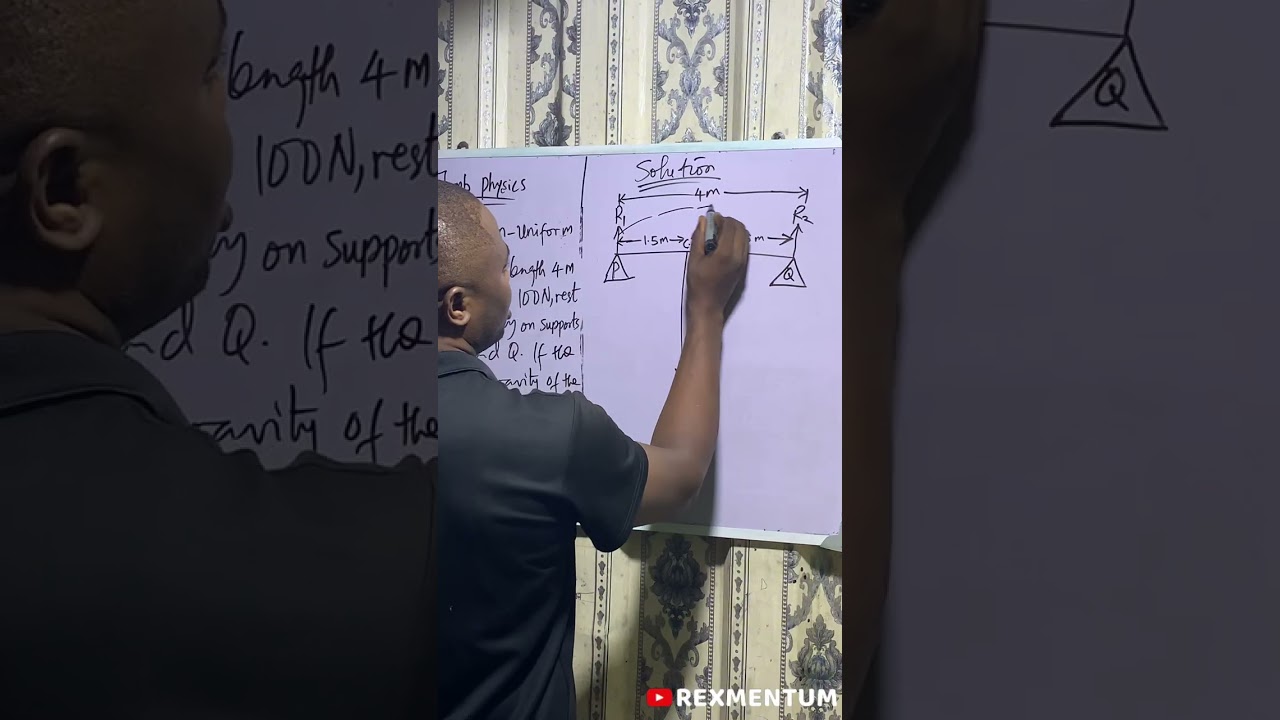 length 4m
100N, rest
y on supports
nd Q. If the
avity of the
Jamb physics
n-Uniform
length 4m
100N, rest
y on supports
nd Q. If the
avity of the
Solution
4m
R1
R2
1.5m
m
P
Q
Q
REXMENTUM